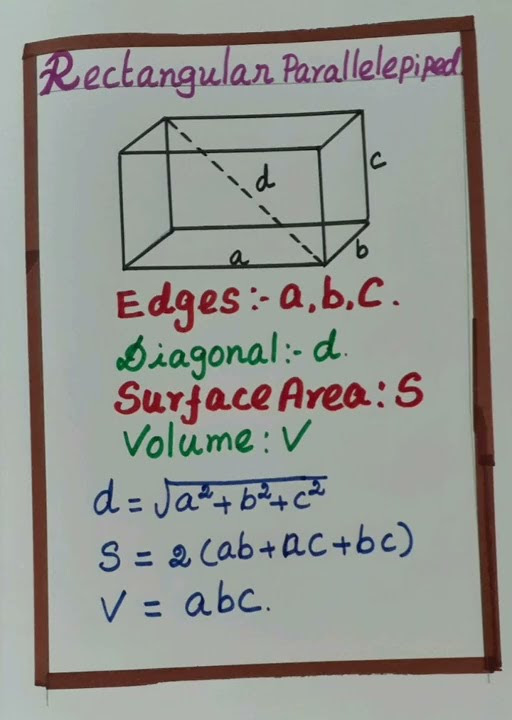 Rectangular Parallelepiped
d
c
b
a
Edges:- a,b,C.
Diagonal:- d.
Surface Area: S
Volume: V
d = √a²+b²+c²
S = 2(ab+ac+bc)
V = abc.